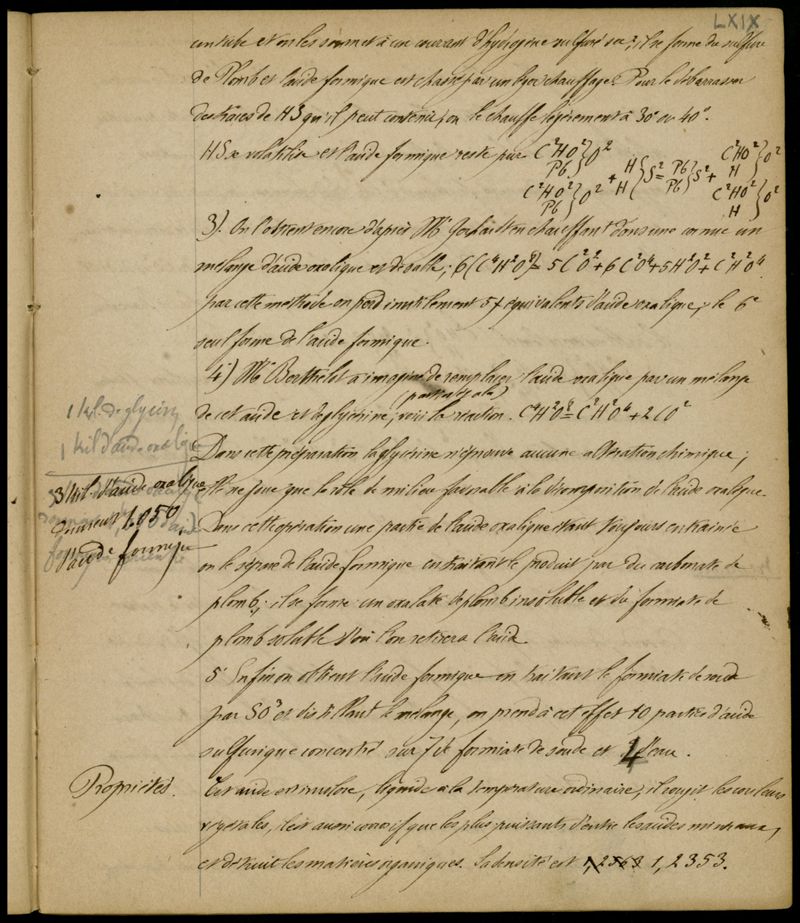 LXIX
un tube et on les soumet à un courant d'hydrogène sulfuré sec; il se forme du sulfure
de Plomb et l'acide formique est chassé par un léger chauffage. Pour le débarrasser
des traces de HS qu'il peut contenir, on le chauffe légèrement à 30° ou 40°.
HS se volatilise et l'acide formique reste pur C²HO² Pb } O² C²HO² Pb } O² + H H } S² = Pb Pb } S² + C²HO² H } O² C²HO² H } O²
3). On l'obtient encore d'après Mr Gerhardt en chauffant dans une cornue un
mélange d'acide oxalique et de sable; 6(C⁴H²O⁸) = 5C²O²+6C²O⁴+5H²O²+C²H²O⁴
par cette méthode on perd inutilement 5 équivalents d'acide oxalique, le 6e
seul forme de l'acide formique.
4) Mr Berthelot a imaginé de remplacer l'acide oxalique par un mélange
de cet acide et de glycérine, (parties égales) voici la réaction. C⁴H²O⁸ = C²H²O⁴ + 2CO²
Dans cette préparation la glycérine n'éprouve aucune altération chimique;
elle ne joue que le rôle de milieu favorable à la décomposition de l'acide oxalique.
Dans cette opération une partie de l'acide oxalique étant toujours entrainée
on le sépare de l'acide formique en traitant le produit par du carbonate de
plomb; il se forme un oxalate de plomb insoluble et du formiate de
plomb soluble d'où l'on retirera l'acide.
5° Enfin on obtient l'acide formique en traitant le formiate de soude
par SO³ et distillant le mélange, on prend à cet effet 10 parties d'acide
sulfurique concentré sur 7 de formiate de soude et 4 d'eau.
Cet acide est incolore, liquide à la température ordinaire; il rougit les couleurs
végétales, il est aussi corrosif que les plus puissants d'entre les acides minéraux,
et détruit les matières organiques. Sa densité est 1,2363 1,2353.
1 kil. de glycérin
1 kil d'acide oxalique
3 kil. d'acide oxalique
donnent 1,050
d'acide formique
Propriétés.